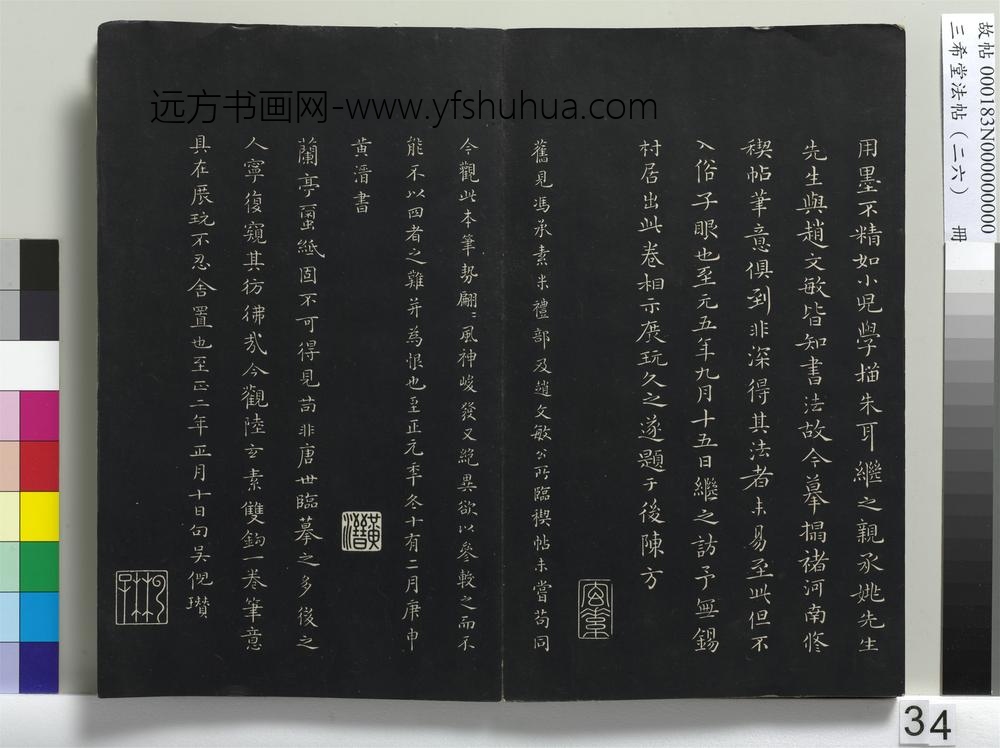 用墨不精如小児學描朱耳繼之親承姚先生
先生與趙文敏皆知書法故今摹搨褚河南修
禊帖筆意俱到非深得其法者未易至此但不
入俗子眼也至元五年九月十五日繼之訪予無錫
村居出此卷相示展玩久之遂題于後陳方
舊見馮承素米禮部及趙文敏公所臨禊帖未嘗苟同
今觀此本筆勢翩〻風神峻發又絶異欲以參較之而不
能不以四者之難并為恨也至正元年冬十有二月庚申
黄溍書
黄溍
蘭亭蠒紙固不可得見苟非唐世臨摹之多後之
人寧復窺其彷彿哉今觀陸玄素雙鉤一卷筆意
具在展玩不忍舍置也至正二年正月十日句吳倪瓚
远方书画网-www.yfshuhua.com
故帖 000183N000000000
三希堂法帖（二六） 冊
34